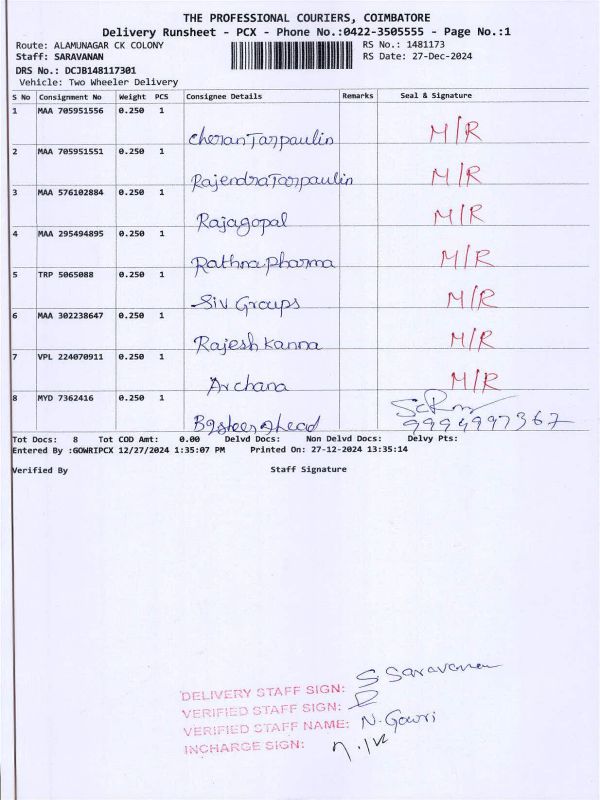 THE PROFESSIONAL COURIERS, COIMBATORE
Delivery Runsheet - PCX - Phone No.:0422-3505555 - Page No.:1
Route: ALAMUNAGAR CK COLONY RS No.: 1481173
Staff: SARAVANAN RS Date: 27-Dec-2024
DRS No.: DCJB148117301
Vehicle: Two Wheeler Delivery
S No Consignment No Weight PCS Consignee Details Remarks Seal & Signature
1 MAA 705951556 0.250 1 Cheran Tarpaulin M/R
2 MAA 705951551 0.250 1 Rajendra Tarpaulin M/R
3 MAA 576102884 0.250 1 Rajagopal M/R
4 MAA 295494895 0.250 1 Rathna pharma M/R
5 TRP 5065088 0.250 1 Siv Groups M/R
6 MAA 302238647 0.250 1 Rajesh Kanna M/R
7 VPL 224070911 0.250 1 Archana M/R
8 MYD 7362416 0.250 1 9994997367
Tot Docs: 8 Tot COD Amt: 0.00 Delvd Docs: Non Delvd Docs: Delvy Pts:
Entered By :GOWRIPCX 12/27/2024 1:35:07 PM Printed On: 27-12-2024 13:35:14
Verified By Staff Signature
DELIVERY STAFF SIGN: S Saravanan
VERIFIED STAFF SIGN:
VERIFIED STAFF NAME: N. Gowri
INCHARGE SIGN: